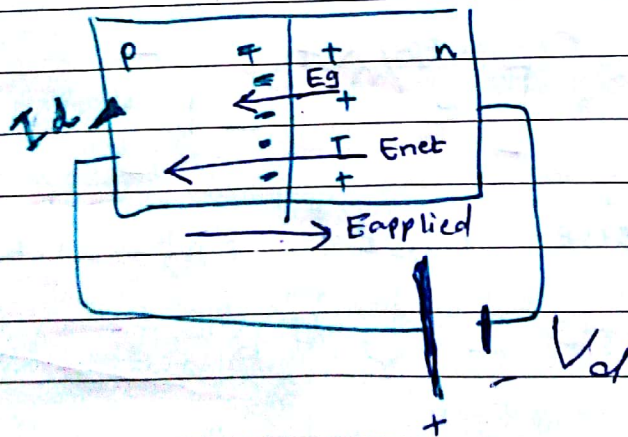 p + + n
Eg
+
Id
I Enet
+
Eapplied
Vd
+ -